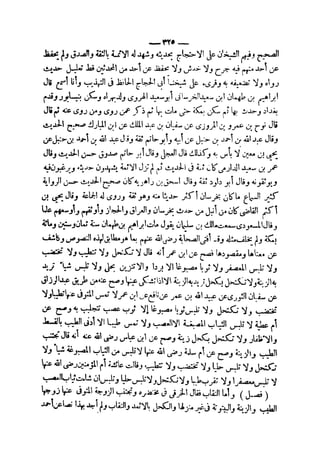 — ٣٢٥ —
الصحيح وفيهم الشيخان على الاحتجاج بحديثه وشهد له الأئمة بالثقة والصدق ولم يحفظ
عن أحد منهم فيه جرح ولا خدش ولا يحفظ عن أحد من المحدثين قط تعليل حديث
رواه ولا تضعيفه به وقرىء على شيخنا أبى الحجاج الحافظ فى التهذيب وأنا أسمع قال
ابراهيم بن طهمان ابن سعيد الخرسانى أبو سعيد الهروى ولد بهراه وسكن نيسابور وقدم
بغداد وحدث بها ثم سكن بمكة حتى مات بها ثم ذكر عمن روى ومن روى عنه ثم قال
قال نوح بن عمرو بن المروزى عن سفيان بن عبد الملك عن ابن المبارك صحيح الحديث
وقال عبد الله بن أحمد بن حنبل عن أبيه وأبو حاتم ثقة وقال عبد الله بن أحمد بن حنبل عن
يحيى بن معين لا بأس به وكذلك قال العجلى وقال أبو حاتم صدوق حسن الحديث وقال
عمر بن سعيد الدارمى كان ثقة فى الحديث ثم لم تزل الأئمة يشتهون حديثه ويرغبون فيه
ويوثقونه وقال أبو داود ثقة وقال اسحق بن راهويه كان صحيح الحديث حسن الرواية
كثير السماع ما كان بخرسان أكثر حديثا منه وهو ثقة وروى له الجماعة وقال يحيى بن
أكثم القاضى كان من أنبل من حدث بخرسان والعراق والحجاز وأوثقهم وأوسعهم علما
وقال المسعودى سمعت مالك بن سليمان يقول مات ابراهيم بن طهمان سنة ثمان وستين ومائة
بمكة ولم يخلف مثله وقد أفتى الصحابة رضى الله عنهم بما هو مطابق لهذه النصوص وكاشف
عن معناها ومقصودها فصح عن ابن عمر أنه قال لا تكتحل ولا تتطيب ولا تختضب
ولا تلبس المعصفر ولا ثوبا مصبوغا الا بردا ولا تتزين بحلى ولا تلبس شيئا تريد
به الزينة ولا تكتحل بكحل تريد به الزينة الا أن تشتكى عينها وصح عنه من طريق عبد الرزاق
عن سفيان الثورى عن عبيد الله بن عمر عن نافع عن ابن عمر لا تمس المتوفى عنها طيبا ولا
تختضب ولا تكتحل ولا تلبس ثوبا مصبوغا إلا ثوب عصب تتجلبب به وصح عن
أم عطية لا تلبس الثياب المصبغة الا العصب ولا تمس طيبا الا أدنى الطيب بالقسط
والاظفار ولا تكتحل بكحل زينة وصح عن ابن عباس رضى الله عنه أنه قال تجتنب
الطيب والزينة وصح عن أم سلمة رضى الله عنها لا تلبس من الثياب المصبوغة شيأ ولا
تكتحل ولا تلبس حليا ولا تختضب ولا تتطيب وقالت عائشة أم المؤمنين رضى الله عنها
لا تلبس معصفرا ولا تقرب طيبا ولا تكتحل ولا تلبس حليا وتلبس إن شاءت ثياب العصب
( فصل ) وأما النقاب فقال الخرقى فى مختصره وتجتنب الزوجة المتوفى عنها زوجها
الطيب والزينة والبيتوتة فى غير منزلها والكحل بالاثمد والنقاب ولم أجد بهذا نصا عن أحمد